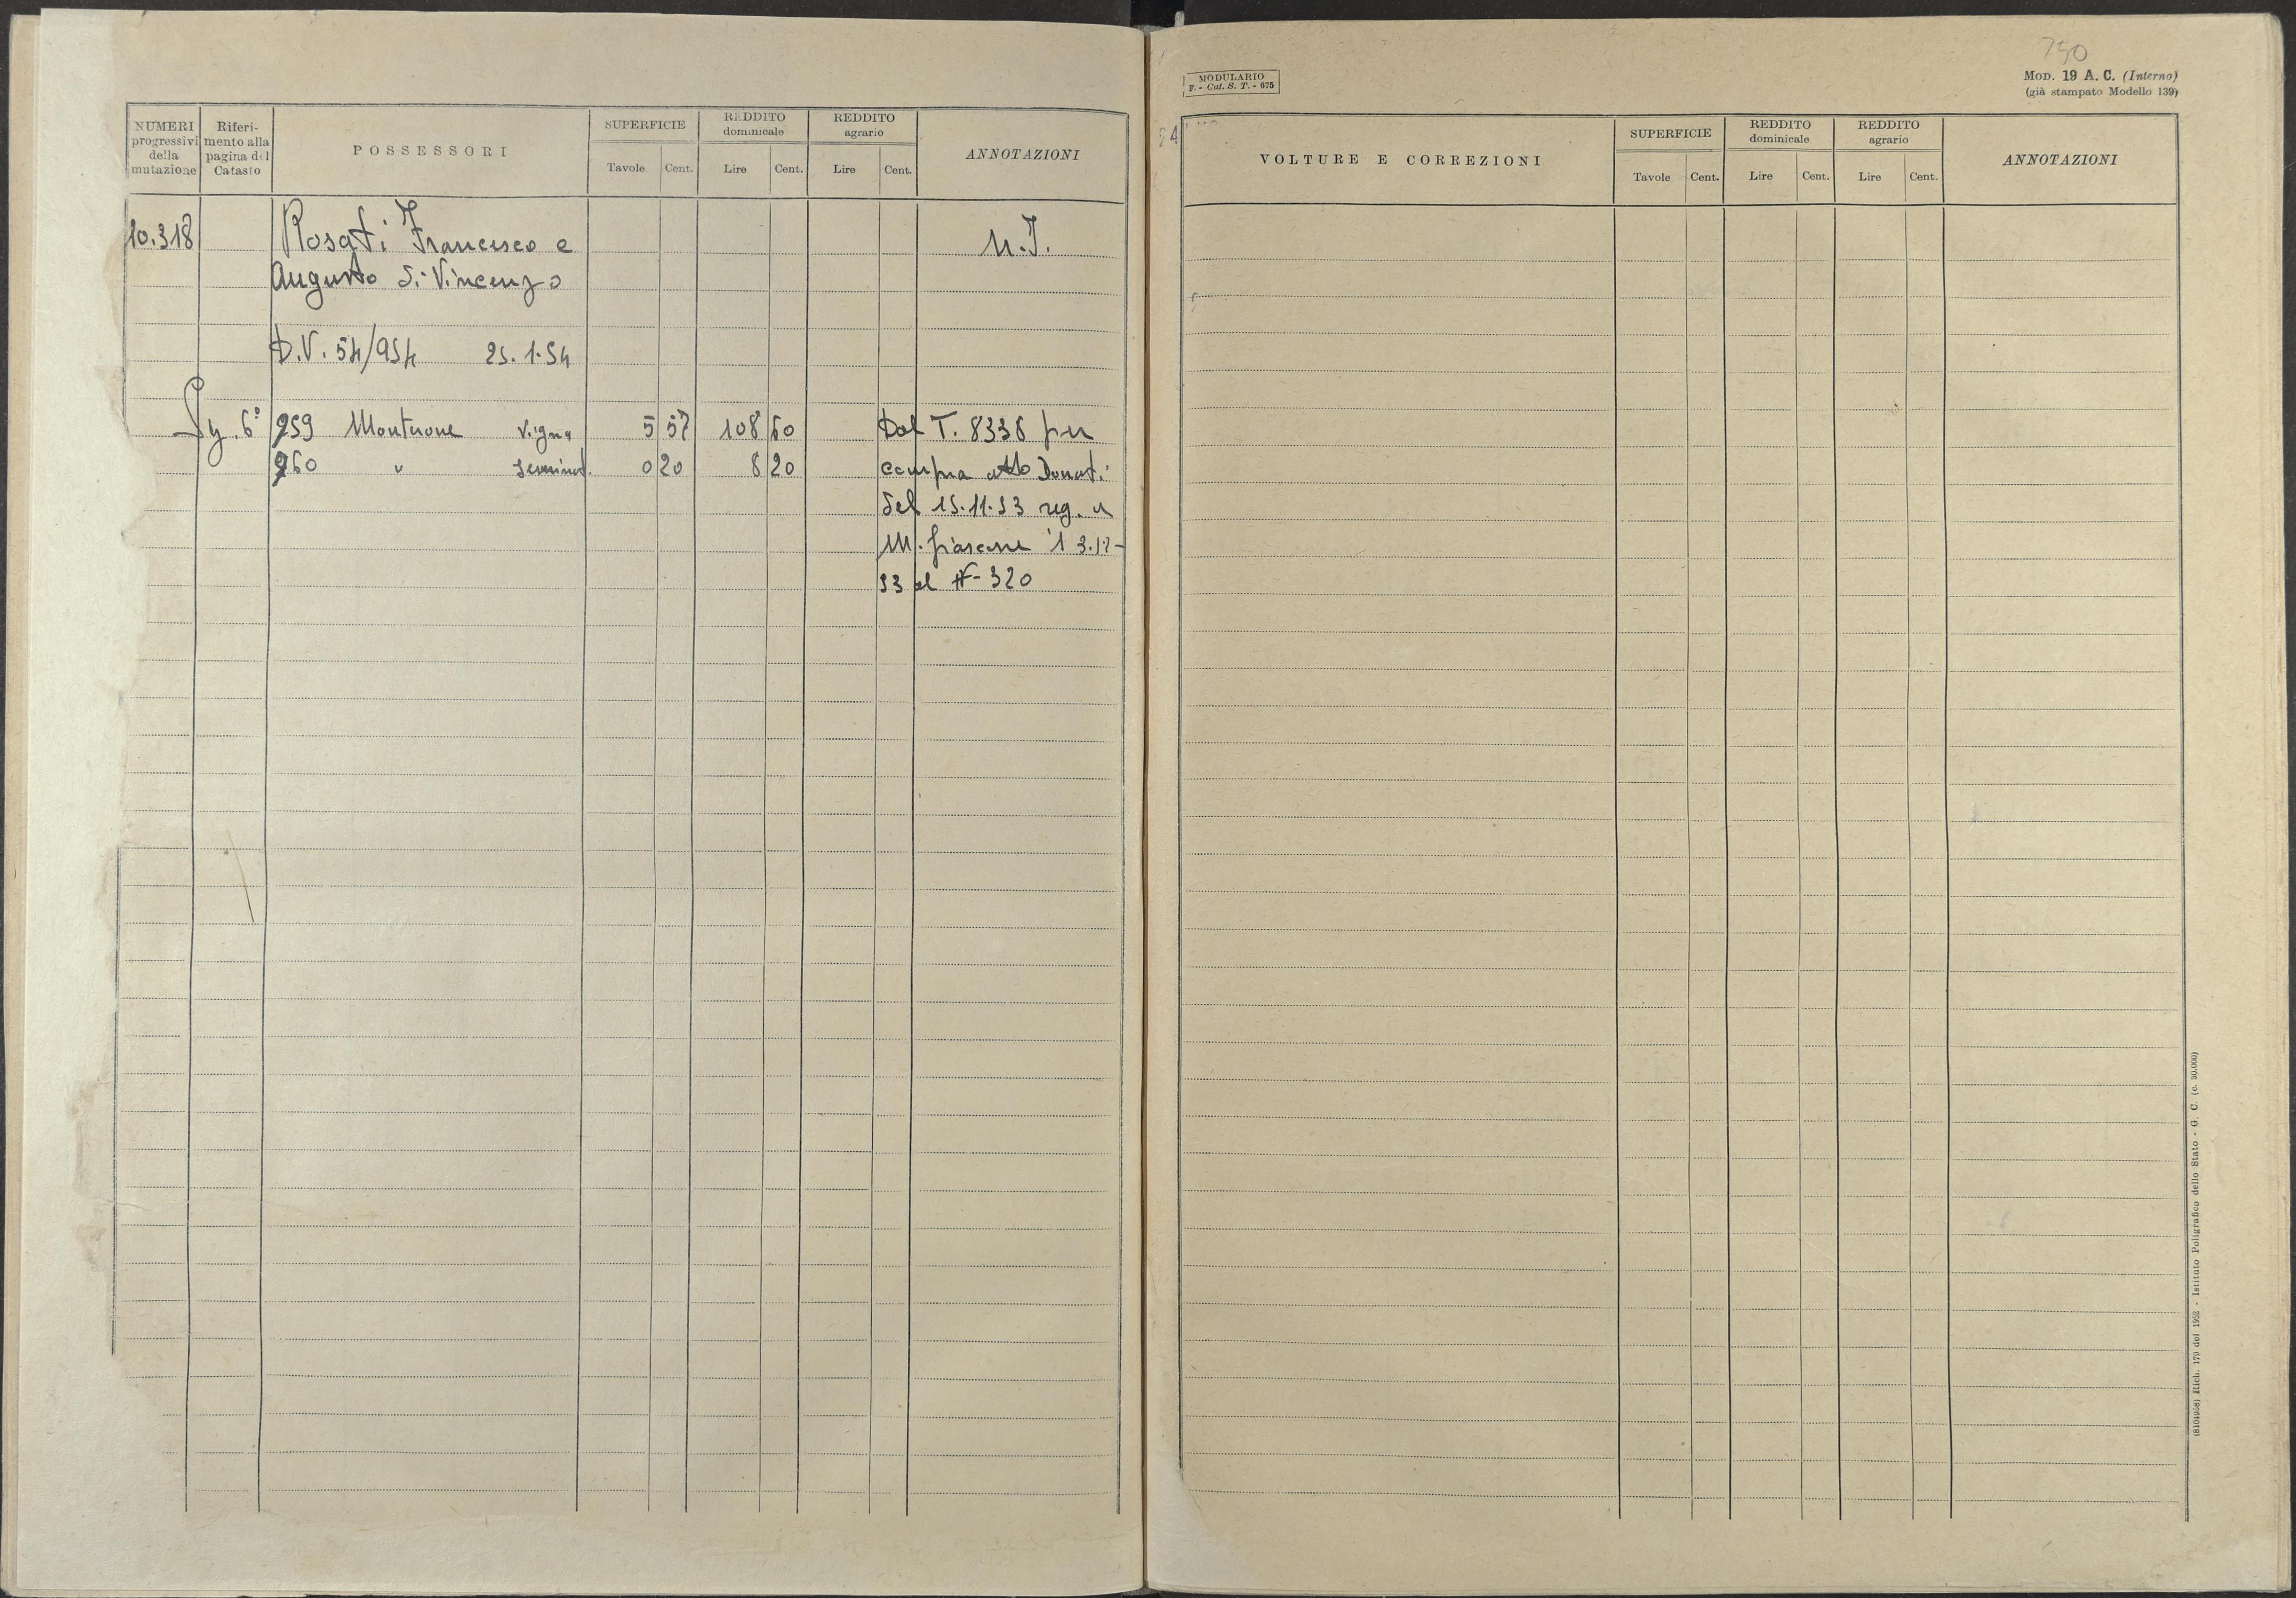 NUMERI progressivi della mutazione
Riferimento alla pagina del Catasto
POSSESSORI
SUPERFICIE
Tavole Cent.
REDDITO dominicale
Lire Cent.
REDDITO agrario
Lire Cent.
ANNOTAZIONI
10.318 Rosati Francesco e
Augusto di Vincenzo
N.I.
D.V. 54/954 25.1.54
959 Monterone Vigna 5 57 108 60 Dal T. 8336 per
960 " Seminat. 0 20 8 20 compra atto Donati
del 15.11.53 reg. a
M.fiascone
53 al N- 320
790
MODULARIO
F. - Cat. S. T. - 675
MOD. 19 A. C. (Interno)
(già stampato Modello 139)
24
VOLTURE E CORREZIONI
SUPERFICIE
Tavole Cent.
REDDITO dominicale
Lire Cent.
REDDITO agrario
Lire Cent.
ANNOTAZIONI
Rich. 179 del 1952 - Istituto Poligrafico dello Stato - G. C. (c. 30.000)